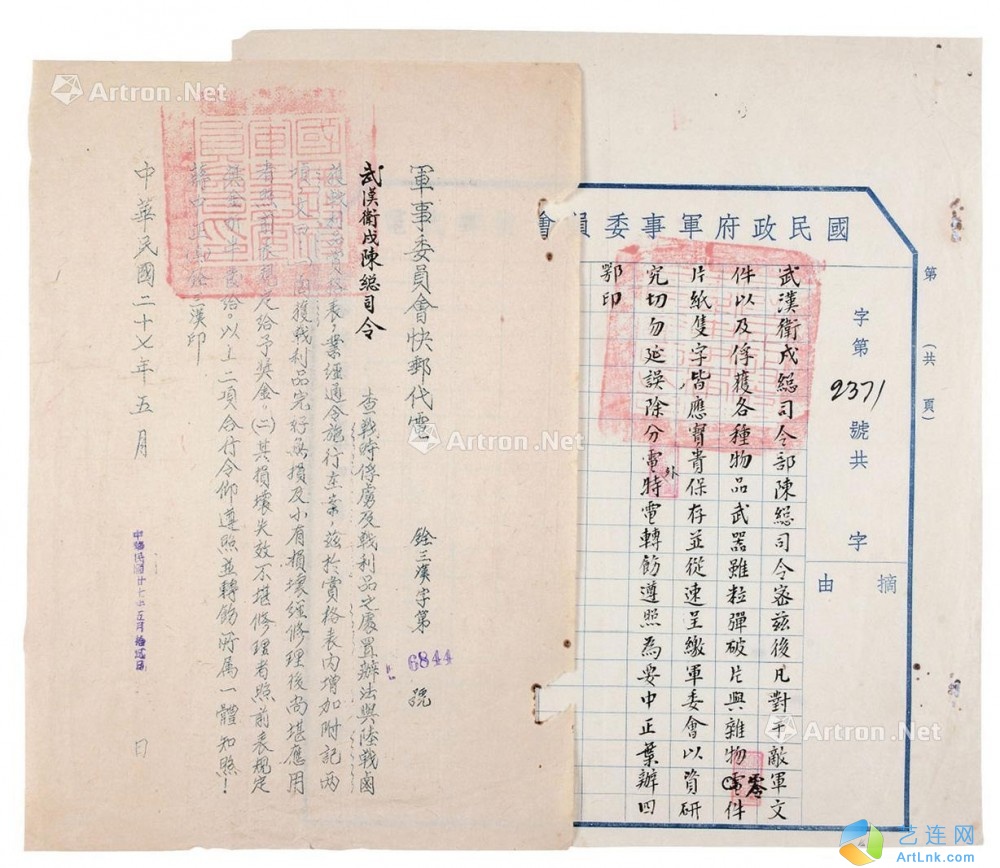 國民政府軍事委員會
第　（共　頁）
字第2371號共　字
摘由
武漢衛戍總司令部陳總司令密茲後凡對于敵軍文
件以及俘獲各種物品武器雖粒彈破片與雜物零件
片紙隻字皆應寶貴保存並從速呈繳軍委會以資研
究切勿延誤除分電外特電轉飭遵照為要中正葉辦四
鄂印
軍事委員會快郵代電　銓三漢字第6844號
武漢衛戍陳總司令
查戰時俘虜及戰利品之處置辦法與陸戰鹵
獲戰利品賞格表，業經通令施行在案，茲於賞格表內增加附記兩
項
獲戰利品完好無損及小有損壞經修理後尚堪應用
者照
規定給予獎金。(二)其損壞失效不堪修理者照前表規定
給。以上二項合行令仰遵照並轉飭所屬一體知照！
蔣中正
銓三漢印
中華民國二十七年五月　日
中華民國廿七年五月
Artron.Net
Artron.Net
Artron.Net
Artron.Net
艺连网
ArtLnk.com